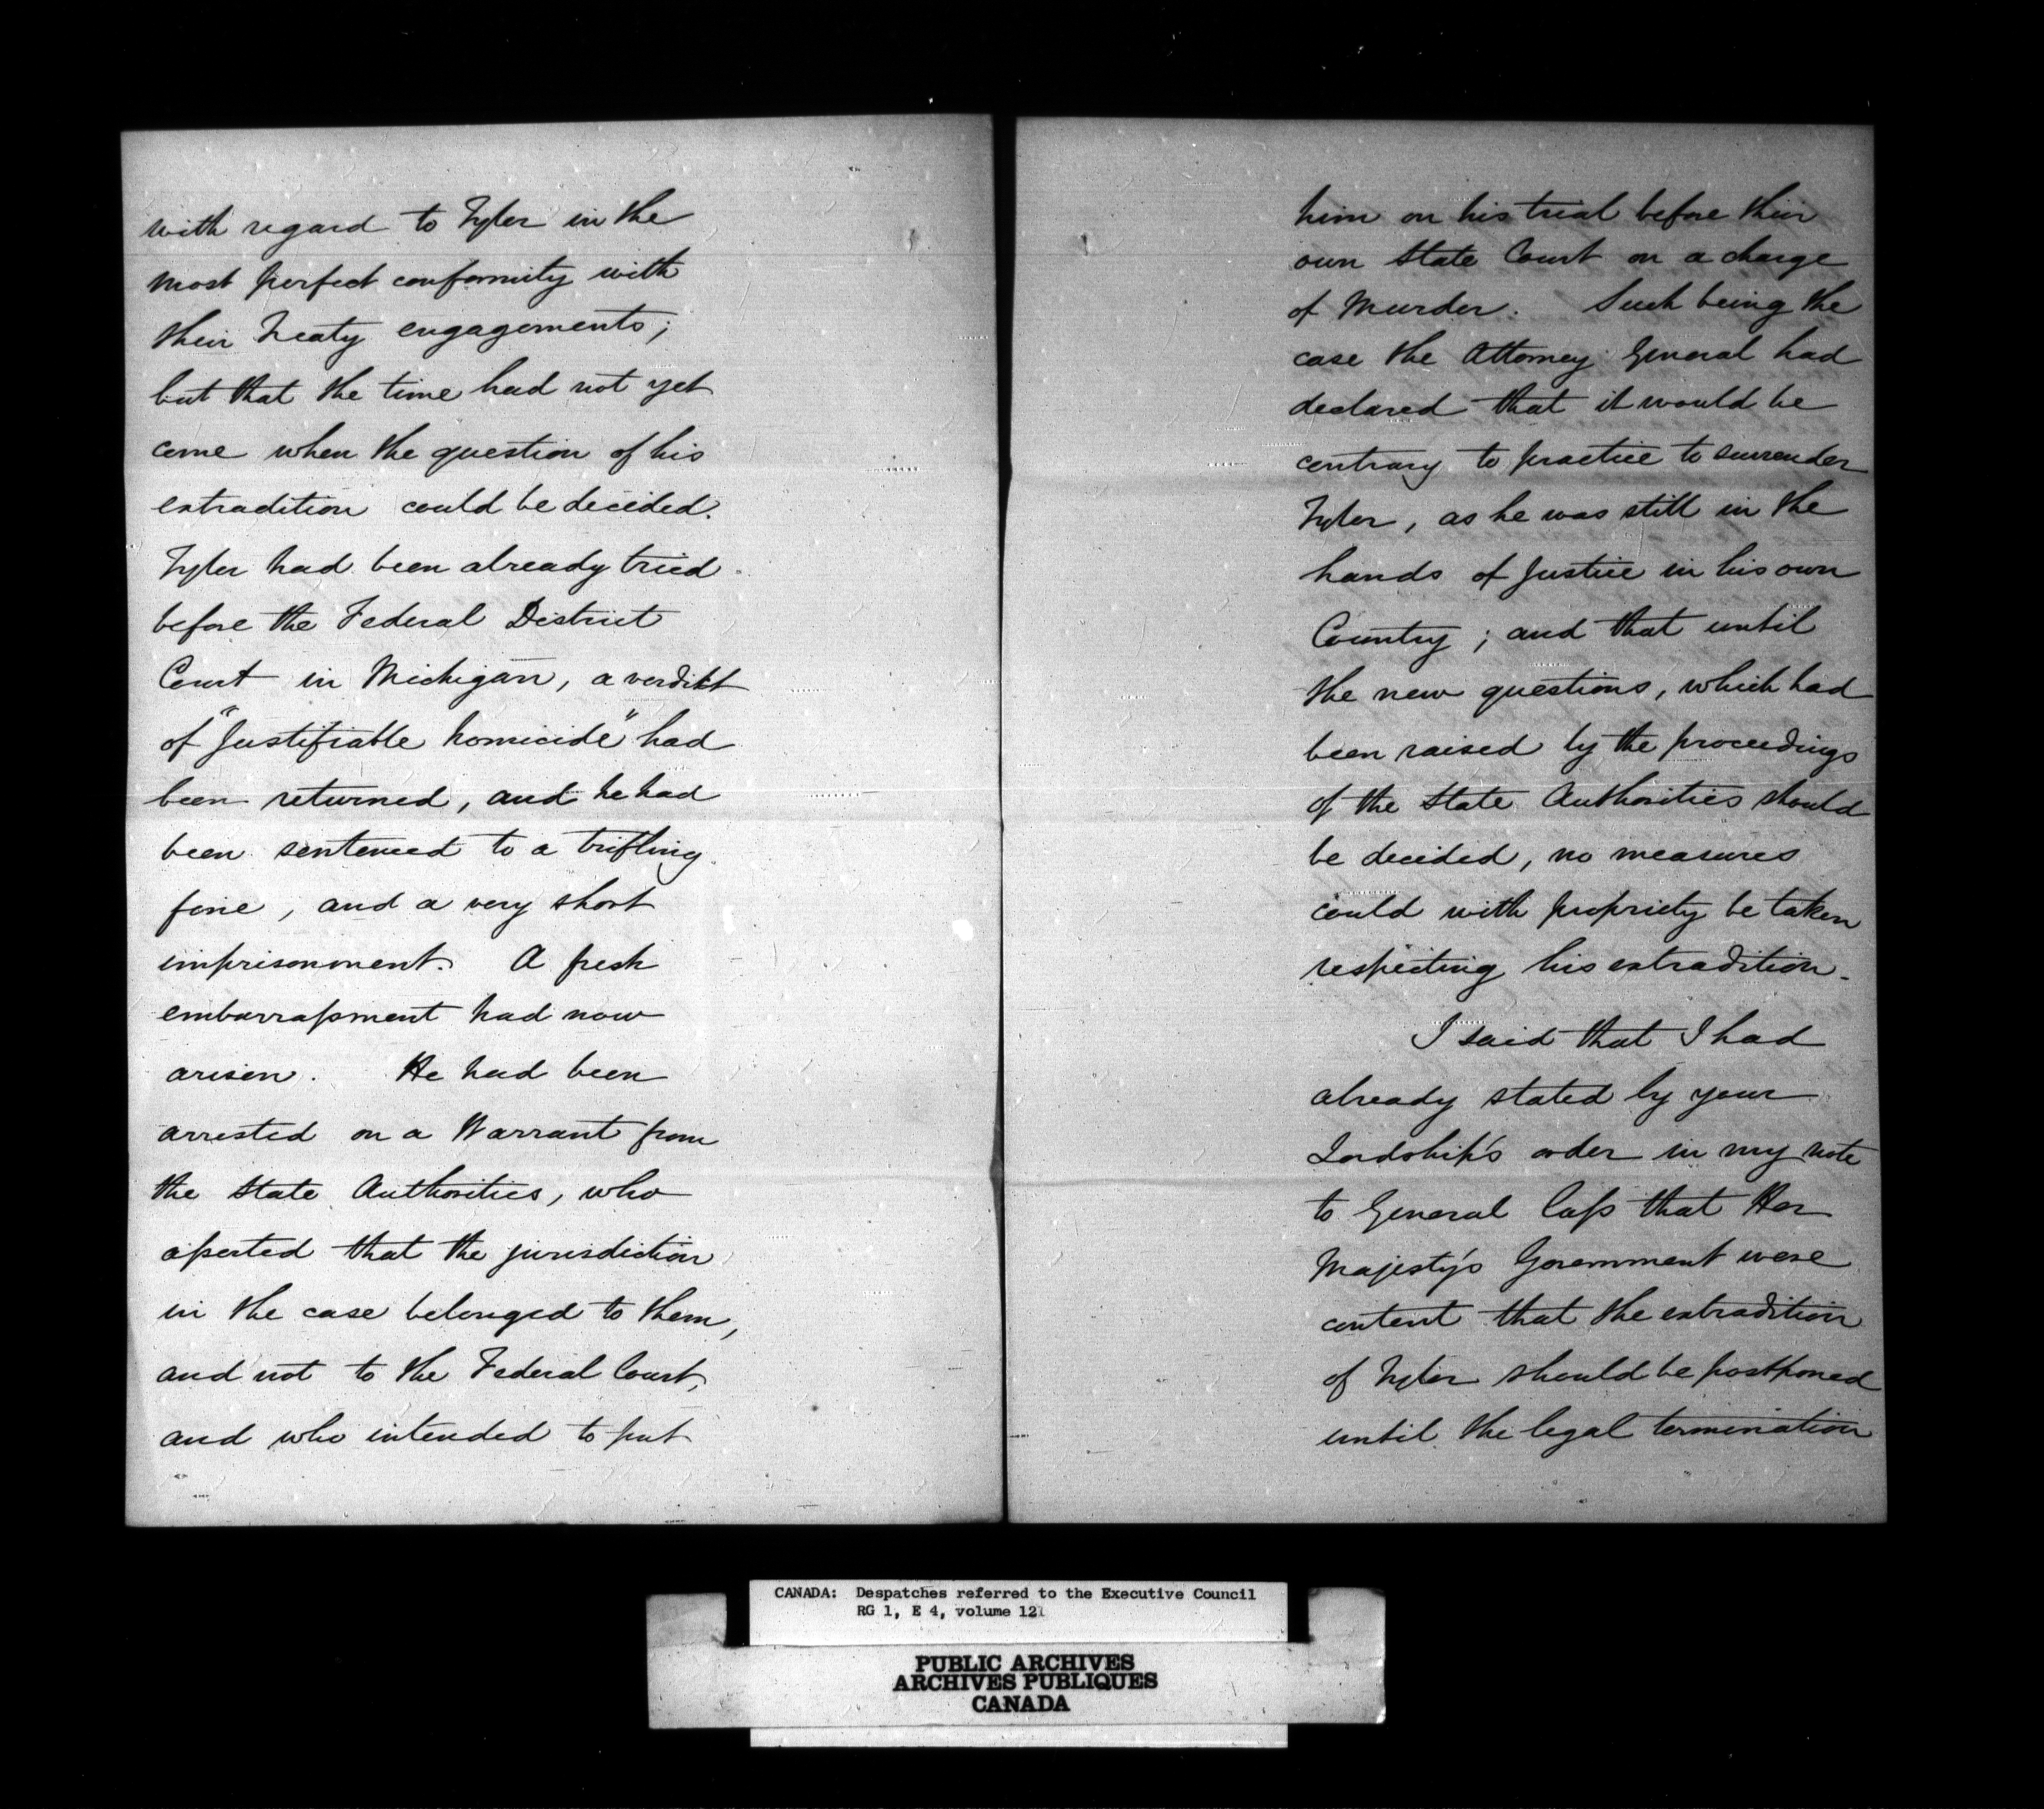 with regard to Tyler in the
most perfect conformity with
their Treaty engagements;
but that the time had not yet
come when the question of his
extradition could be decided.
Tyler had been already tried
before the Federal District
Court in Michigan, a verdikt
of "Justifiable homicide" had
been returned, and he had
been sentenced to a trifling
fine, and a very short
imprisonment. A fresh
embarrassment had now
arisen. He had been
arrested on a Warrant from
the State Authorities, who
asserted that the jurisdiction
in the case belonged to them,
and not to the Federal Court,
and who intended to put
him on his trial before their
own State Court on a charge
of Murder. Such being the
case the Attorney General had
declared that it would be
contrary to practice to surrender
Tyler, as he was still in the
hands of Justice in his own
Country; and that until
the new questions, which had
been raised by the proceedings
of the State Authorities should
be decided, no measures
could with propriety be taken
respecting his extradition.
I said that I had
already stated by your
Lordship's order in my note
to General Cass that Her
Majesty's Government were
content that the extradition
of Tyler should be postponed
until the legal termination
CANADA: Despatches referred to the Executive Council
RG 1, E 4, volume 121
PUBLIC ARCHIVES
ARCHIVES PUBLIQUES
CANADA